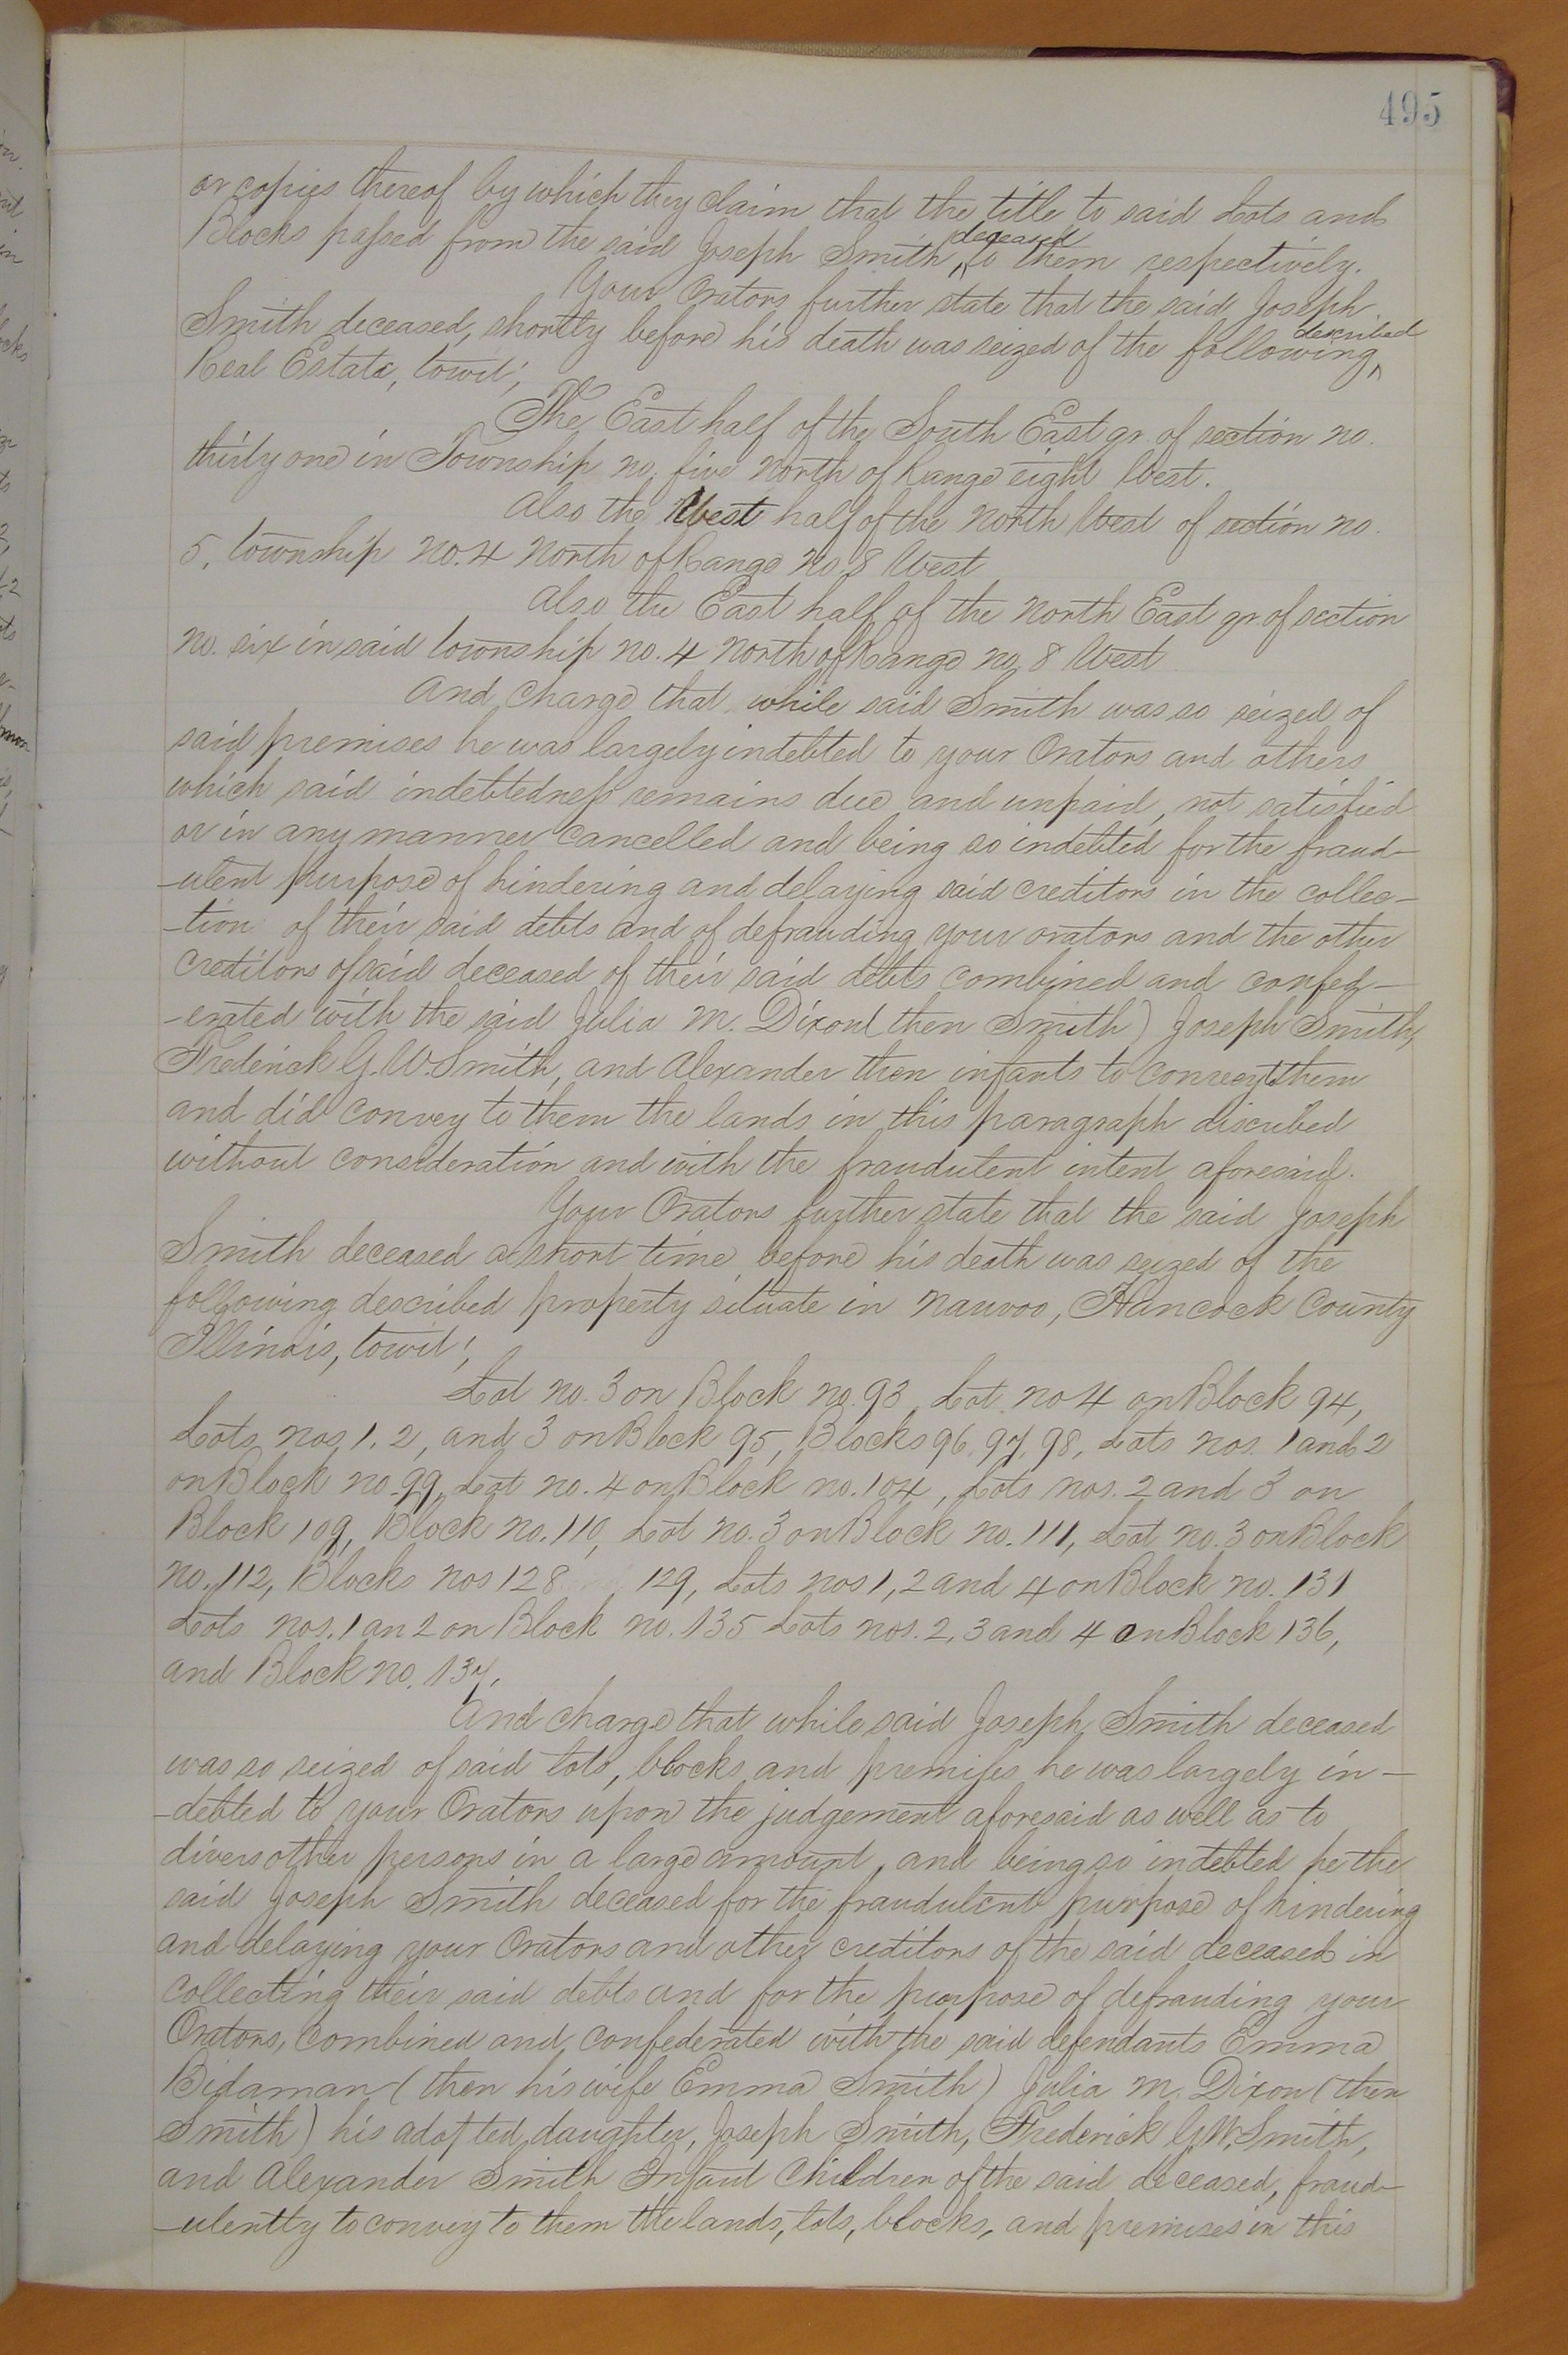 495
or copies thereof by which they claim that the title to said Lots and
Blocks passed from the said Joseph Smith, deceased to them respectively.
Your Orators further state that the said Joseph
Smith deceased, shortly before his death was seized of the following described
Real Estate, towit;
The East half of the South East qr. of section no.
thirty one in Township no. five north of Range eight West.
Also the West half of the North West of section no.
5. township no. 4 North of Range no. 8 West
Also the East half of the North East qr of section
no. six in said township no. 4 North of Range no. 8 West
And charge that while said Smith was so seized of
said premises he was largely indebted to your Orators and others
which said indebtedness remains due and unpaid, not satisfied
or in any manner cancelled and being so indebted for the fraud-
-ulent purpose of hindering and delaying said creditors in the collec-
-tion of their said debts and of defrauding your orators and the other
creditors of said deceased of their said debts combined and confed-
-erated with the said Julia M. Dixon (then Smith) Joseph Smith,
Frederick G. W. Smith, and Alexander then infants to convey to them
and did convey to them the lands in this paragraph discribed
without consideration and with the fraudulent intent aforesaid.
Your Orators further state that the said Joseph
Smith deceased a short time before his death was seized of the
following described property situate in Nauvoo, Hancock County
Illinois, towit;
Lot no. 3 on Block no. 93, Lot no 4 on Block 94,
Lots nos. 1, 2, and 3 on Block 95, Blocks 96, 97, 98, Lots nos. 1 and 2
on Block no. 99, Lot no. 4 on Block no. 104, Lots nos. 2 and 3 on
Block 109, Block no. 110, Lot no. 3 on Block no. 111, Lot no. 3 on Block
no. 112, Blocks nos 128 129, Lots nos 1, 2 and 4 on Block no. 131
Lots nos. 1 an 2 on Block no. 135 Lots nos. 2, 3 and 4 on Block 136,
and Block no. 137.
And charge that while said Joseph Smith deceased
was so seized of said lots, blocks and premises he was largely in-
-debted to your Orators upon the judgement aforesaid as well as to
divers other persons in a large amount, and being so indebted he the
said Joseph Smith deceased for the fraudulent purpose of hindering
and delaying your Orators and other creditors of the said deceased in
collecting their said debts and for the purpose of defrauding your
Orators, combined and confederated with the said defendants Emma
Bidaman (then his wife Emma Smith) Julia M. Dixon (then
Smith) his adopted daughter, Joseph Smith, Frederick G. W. Smith,
and Alexander Smith Infant Children of the said deceased, fraud-
-ulently to convey to them the lands, lots, blocks, and premises in this